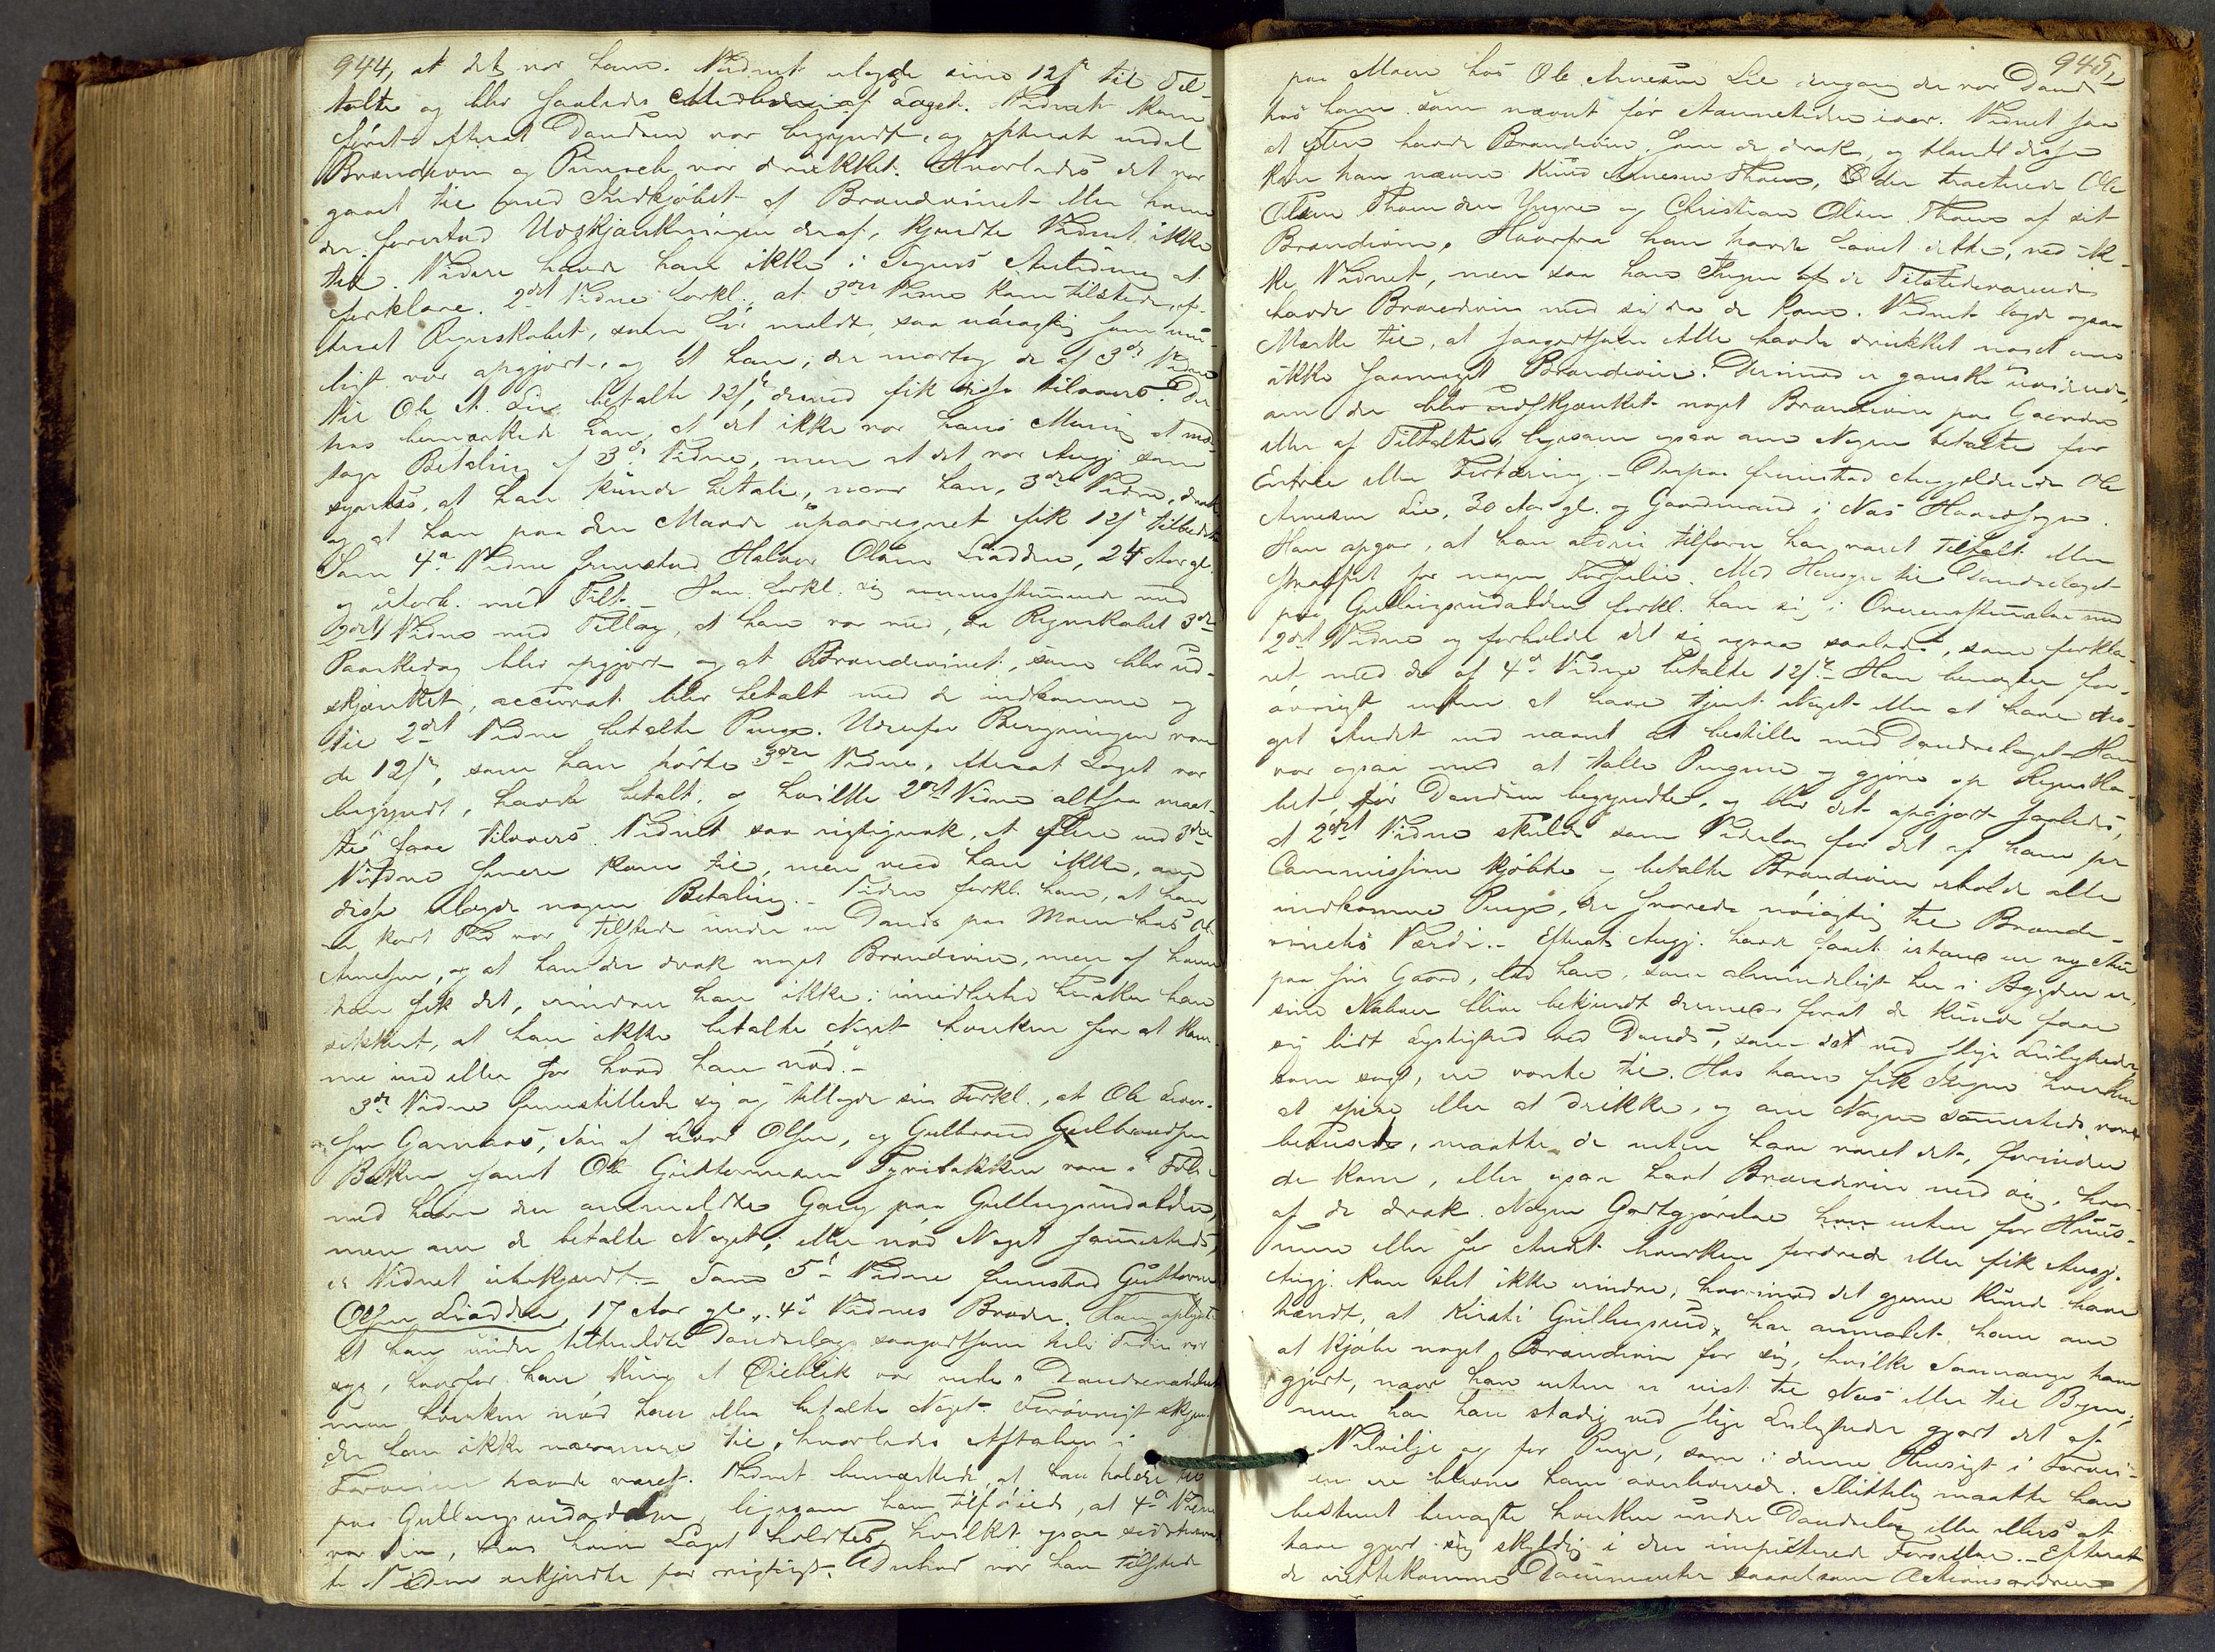 944, at det var ham. Vidnet erlagde sine 12 ſ til Til-
talte og blev saaledes Medlem af Laget. Vidnet kom
først efterat Dandsen var begyndt, og efterat endel
Brændeviin og Punsch var drukket. Hvorledes det var
gaaet til med Indkjøbet af Brændevinet eller hvem
der forestod Udskjænkningen deraf, kjendte Vidnet ikke
til. Videre havde han ikke i Sagens Anledning at
forklare. 2det Vidne forkl., at 3die Vidne kom tilstede, ef-
terat Regnskabet, som før meldt, saa nøiagtig som mu-
ligt var opgjort, og at han, der modtog de af 3die Vidne
til Ole A. Lie betalte 12 ſ, derved fik disse tilovers. Der-
hos bemærkede han, at det ikke var hans Mening at mod-
tage Betaling af 3die Vidne, men at det var Angj. som
syntes, at han kunde betale, naar han, 3die Vidne, drak
og at han paa den Maade upaaregnet fik 12 ſ tilbedste
Som 4de Vidne fremstod Halvor Olsen Liadden, 24 Aar gl.
og ubesl. med Tilt. Han forkl. sig overensstemmende med
2det Vidne med Tillæg, at han var med, da Regnskabet 3die
Paaskedag blev opgjort og at Brændevinet, som blev ud-
skjænket, accurat blev betalt med de indkomne og
til 2det Vidne betalte Penge. Udenfor Beregningen vare
de 12 ſ, som han hørte 3die Vidne, efterat Laget var
begyndt, havde betalt, og hvilke 2det Vidne altsaa maat-
te faae tilovers. Vidnet saa rigtignok, at flere end 3die
Vidne senere kom til, men veed han ikke, om
disse erlagde nogen Betaling. Videre forkl. han, at han
en kort Tid var tilstede under en Dands paa Moen hos Ole
Arnesen, og at han der drak noget Brændeviin, men af hvem
han fik det, mindes han ikke; imidlertid husker han
sikkert, at han ikke betalte Noget hverken for at kom-
me ind eller for hvad han nød.
3die Vidne fremstillede sig og tillagde sin Forkl., at Ole Iver-
sen Garnaas, Søn af Iver Olsen, og Gulbrand Gulbrandsen
Bakken samt Ole Guttormsen Tyribakken vare i Følge
med ham den anmeldte Gang paa Gullingsrudalden,
men om de betalte Noget, eller nød Noget sammesteds,
er Vidnet ubekjendt. Som 5te Vidne fremstod Guttorm
Olsen Liadden, 17 Aar gl., 4de Vidnes Broder. Han oplyste
at han under tiltaldte Dandselag saagodtsom hele Tiden var
syg, hvorfor han kun et Øieblik var inde i Dandseværelset
men hverken nød han eller betalte Noget. Forøvrigt skjøn-
der han ikke nærmere til, hvorledes Aftalen i
Forveien havde været. Vidnet bemærkede, at han holdt til
paa Gullingsrudalden, ligesom han tilføiede, at 4de Vidne
var Een, hos hvem Laget holdtes, hvilket ogsaa sidstnævn-
te Vidne erkjendte for rigtigt. Derhos var han tilstede
945,
paa Moen hos Ole Arnesen Lie engang der var Dands
hos ham som nævnt før Aannetiden iaar. Vidnet saa
at Flere havde Brændeviin, som de drak, og blandt disse
kan han nævne Knud Arnesen Thoen, og der tracterede Ole
Olsen Thoen den Yngre og Christian Olsen Thoen af sit
Brændeviin. Hvorfra han havde faaet dette, ved ik-
ke Vidnet, men saa han Ingen af de Tilstedeværende
havde Brændeviin med sig da de kom. Vidnet lagde ogsaa
Mærke til, at saagodtsom Alle havde drukket noget om
ikke saameget Brændeviin. Derimod er ganske uvidende,
om der blev udskjænket noget Brændeviin paa Gaarden
eller af Tiltalte, ligesom ogsaa om Nogen betalte for
Entrée eller Fortæring. – Derpaa fremstod Angjeldende Ole
Arnesen Lie, 30 Aar gl. og Gaardmand i Næs Hovedsogn.
Han opgav, at han aldrig tilforn har været tiltalt eller
straffet for nogen Forseelse. Med Hensyn til Dandselaget
paa Gullingsrudalden forkl. han sig i Overensstemmelse med
2det Vidne og forholdt det sig ogsaa saaledes, som forkla-
ret, med de af 4de Vidne betalte 12 ſ. – Han benegter for-
øvrigt enten at have tjent Noget eller at have No-
get Andet end nævnt at bestille med Dandselaget. Han
var ogsaa med at tælle Pengene og gjøre op Regnska-
bet, før Dandsen begyndte, og blev det opgjort saaledes,
at 2det Vidne skulde som Vederlag for det af ham pr
Commission kjøbte og betalte Brændeviin erholde alle
indkomne Penge, der svarede nøiagtig til Brænde-
vinets Værdi. – Efterat Angj. havde faaet istand en ny Stue
paa sin Gaard, lod han, som almindeligt her i Bygden er,
sine Naboer blive bekjendt dermed forat de kunde faae
sig lidt Lystighed ved Dands, som det ved slige Leiligheder,
som sagt, er vante til. Hos ham fik Ingen hverken
at spise eller at drikke, og om Nogen sammesteds vare
berusede, maatte de enten have været det, forinden
de kom, eller ogsaa havt Brændeviin med sig, hvor-
af de drak. Nogen Godtgjørelse hverken for Huus-
rum eller for Andet hverken fordrede eller fik Angj.
Angj. kan slet ikke mindes, hvorimod det gjerne kunde have
hændt, at Kirsti Gullingsrud har anmodet ham om
at kjøbe noget Brændeviin for sig, hvilke Samange ham
gjort, naar han enten er reist til Næs eller til Byen;
men har han stadig ved slige Leiligheder gjort det af
Velvilje og for Penge, som i denne Hensigt i Forvei-
en ere blevne ham overleverede. Skittelig maatte han
bestemt benegte hverken under Dandselag eller ellers at
have gjort sig skyldig i den imputerede Forseelse. – Efterat
de vedkomne Documenter saavelsom Actionsordren